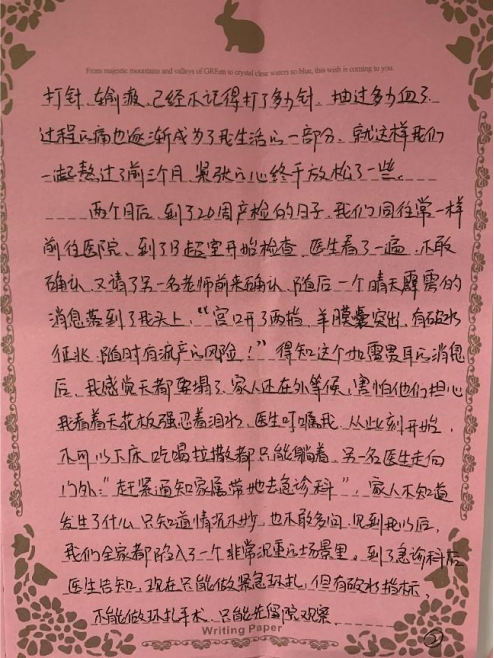 From majestic mountains and valleys of GREen to crystal clear waters so blue, this wish is coming to you.
打针、输液、已经不记得打了多少针、抽过多少血了
过程的痛也逐渐成为了我生活的一部分、就这样我们
一起熬过了前三个月、紧张的心终于放松了一些。
两个月后、到了20周产检的日子、我们同往常一样
前往医院、到了B超室开始检查、医生看了一遍、不敢
确认、又请了另一名老师前来确认、随后一个晴天霹雳的
消息落到了我头上、“宫口开了两指、羊膜囊突出、有破水
征兆、随时有流产的风险！”得知这个如雷贯耳的消息
后、我感觉天都要塌了、家人还在外等候、害怕他们担心
我看着天花板强忍着泪水、医生叮嘱我、从此刻开始、
不可以下床、吃喝拉撒都只能躺着、另一名医生走向
门外：“赶紧通知家属带她去急诊科”、家人不知道
发生了什么、只知道情况不妙、也不敢多问、见到我以后、
我们全家都陷入了一个非常沉重的场景里、到了急诊科后
医生告知、现在只能做紧急环扎、但有破水指标、
不能做环扎手术、只能先留院观察、
Writing Paper
②